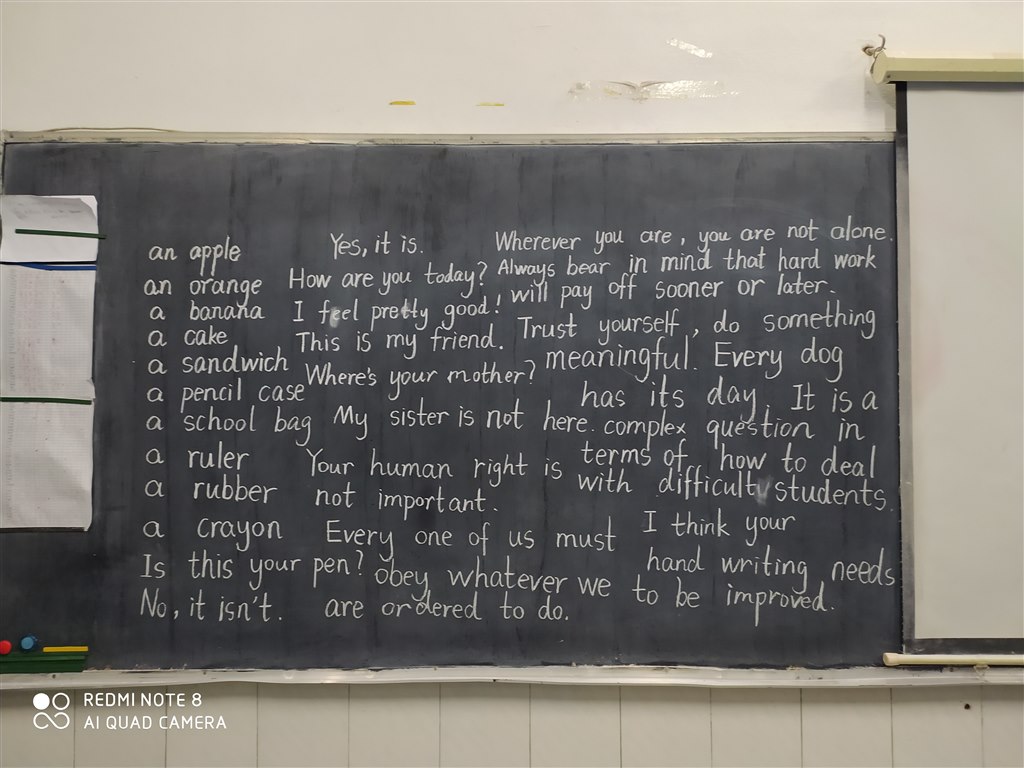 an apple
an orange
a banana
a cake
a sandwich
a pencil case
a school bag
a ruler
a rubber
a crayon
Is this your pen?
No, it isn't.
Yes, it is.
How are you today?
I feel pretty good!
This is my friend.
Where's your mother?
My sister is not here.
Your human right is
not important.
Every one of us must
obey whatever we
are ordered to do.
Wherever you are, you are not alone.
Always bear in mind that hard work
will pay off sooner or later.
Trust yourself, do something
meaningful. Every dog
has its day. It is a
complex question in
terms of how to deal
with difficult students.
I think your
hand writing needs
to be improved.
REDMI NOTE 8
AI QUAD CAMERA